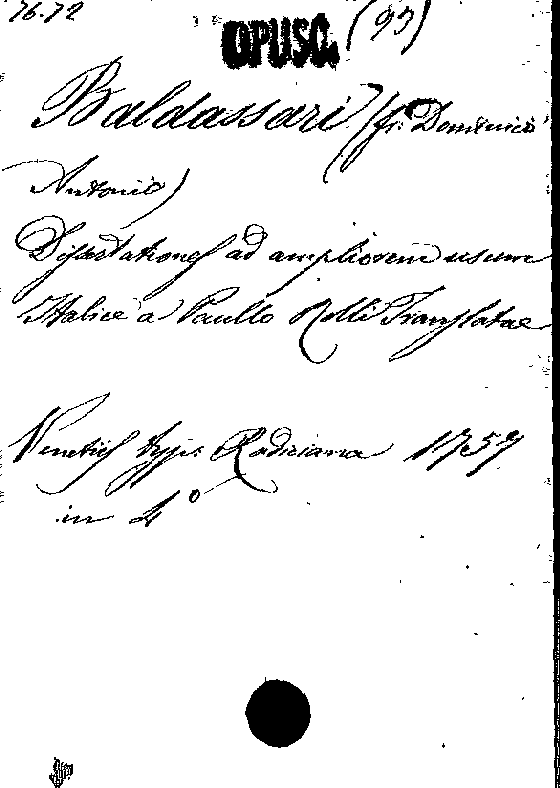 76.72
OPUSC. (93)
Baldassari (fr: Domenico
Antonio)
Dissertationes ad ampliorem usum
Italice a Paullo Rolli Translatae
Venetiis typ: Radiciana 1757
in 4º